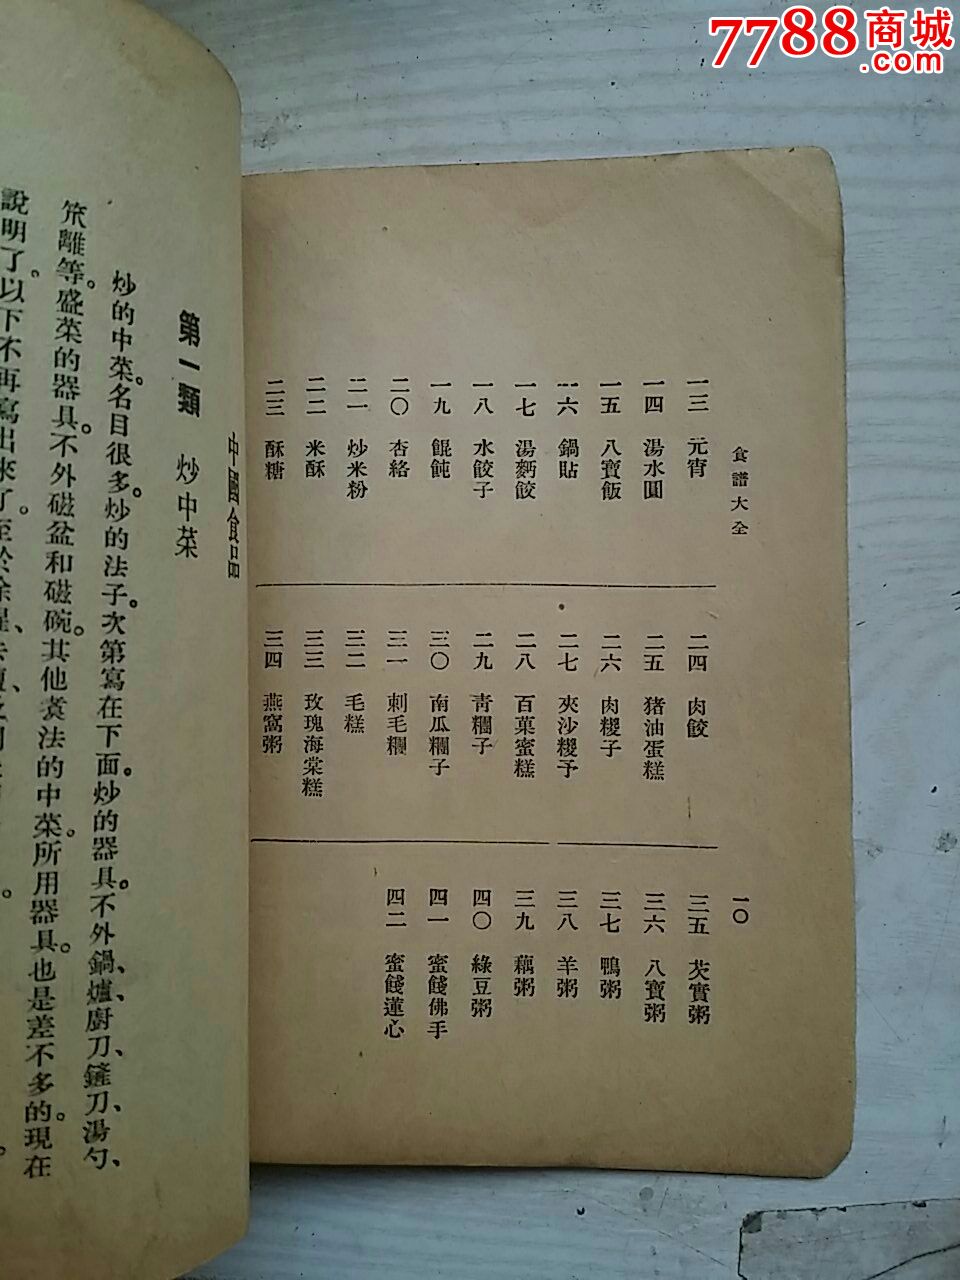 7788商城
.com
食譜大全
一〇
一三 元宵
一四 湯水圓
一五 八寶飯
一六 鍋貼
一七 湯麪餃
一八 水餃子
一九 餛飩
二〇 杏絡
二一 炒米粉
二二 米酥
二三 酥糖
二四 肉餃
二五 猪油蛋糕
二六 肉糉子
二七 夾沙糉子
二八 百菓蜜糕
二九 靑糰子
三〇 南瓜糰子
三一 刺毛糰
三二 毛糕
三三 玫瑰海棠糕
三四 燕窩粥
三五 芡實粥
三六 八寶粥
三七 鴨粥
三八 羊粥
三九 藕粥
四〇 綠豆粥
四一 蜜餞佛手
四二 蜜餞蓮心
中國食品
第一類 炒中菜
炒的中菜。名目很多。炒的法子。次第寫在下面。炒的器具。不外鍋、爐、廚刀、鏟刀、湯勺、
笊籬等。盛菜的器具。不外磁盆和磁碗。其他煑法的中菜。所用器具。也是差不多的。現在
說明了。以下不再寫出來了。至於